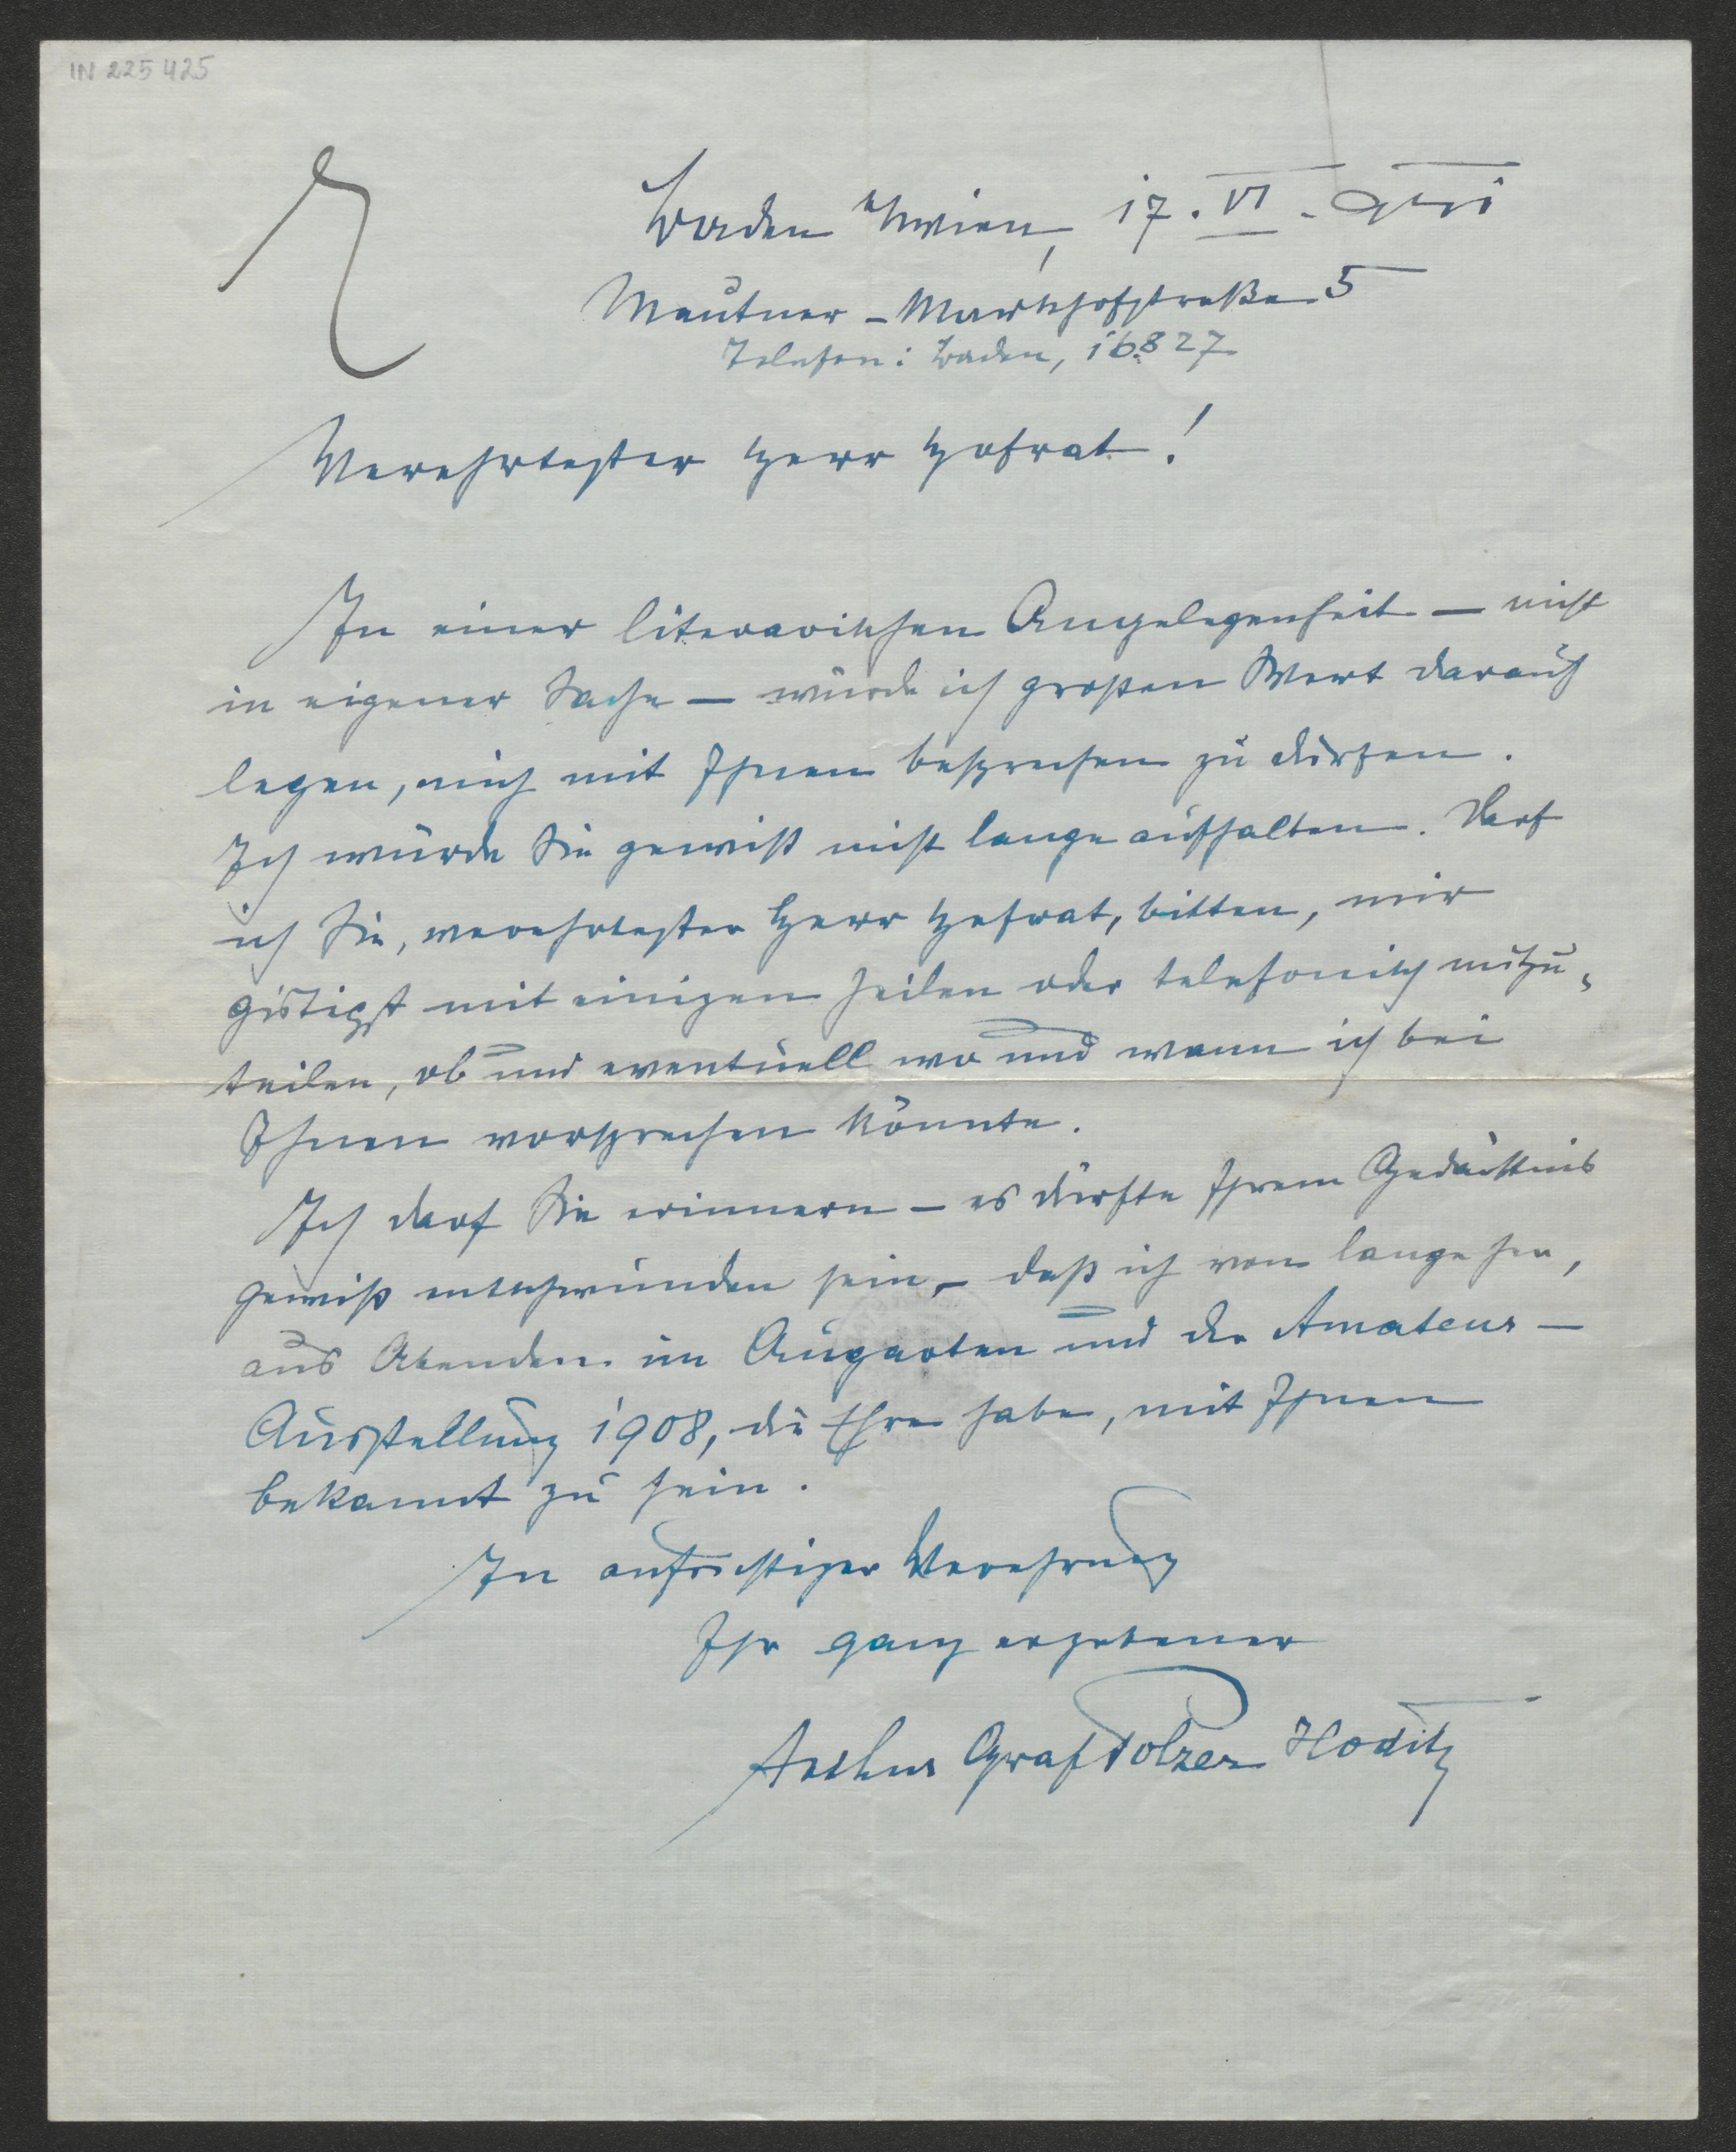 IN 225 425
Baden b/Wien, 17. VI.
Mautner-Markhofstraße 5
Telefon: Baden, 16827
Verehrtester Herr Hofrat!
In einer literarischen Angelegenheit — nicht
in eigener Sache — würde ich großen Wert darauf
legen, mich mit Ihnen besprechen zu dürfen.
Ich würde Sie gewiß nicht lange aufhalten. Darf
ich Sie, verehrtester Herr Hofrat, bitten, mir
gütigst mit einigen Zeilen oder telefonisch mitzu-
teilen, ob und eventuell wo und wann ich bei
Ihnen vorsprechen könnte.
Ich darf Sie erinnern – es dürfte Ihrem Gedächtnis
gewiß entschwunden sein, – daß ich von lange her,
aus Abenden im Augarten und der Amateur-
Ausstellung 1908, die Ehre habe, mit Ihnen
bekannt zu sein.
In aufrichtiger Verehrung
Ihr ganz ergebener
Arthur Graf Polzer Hoditz